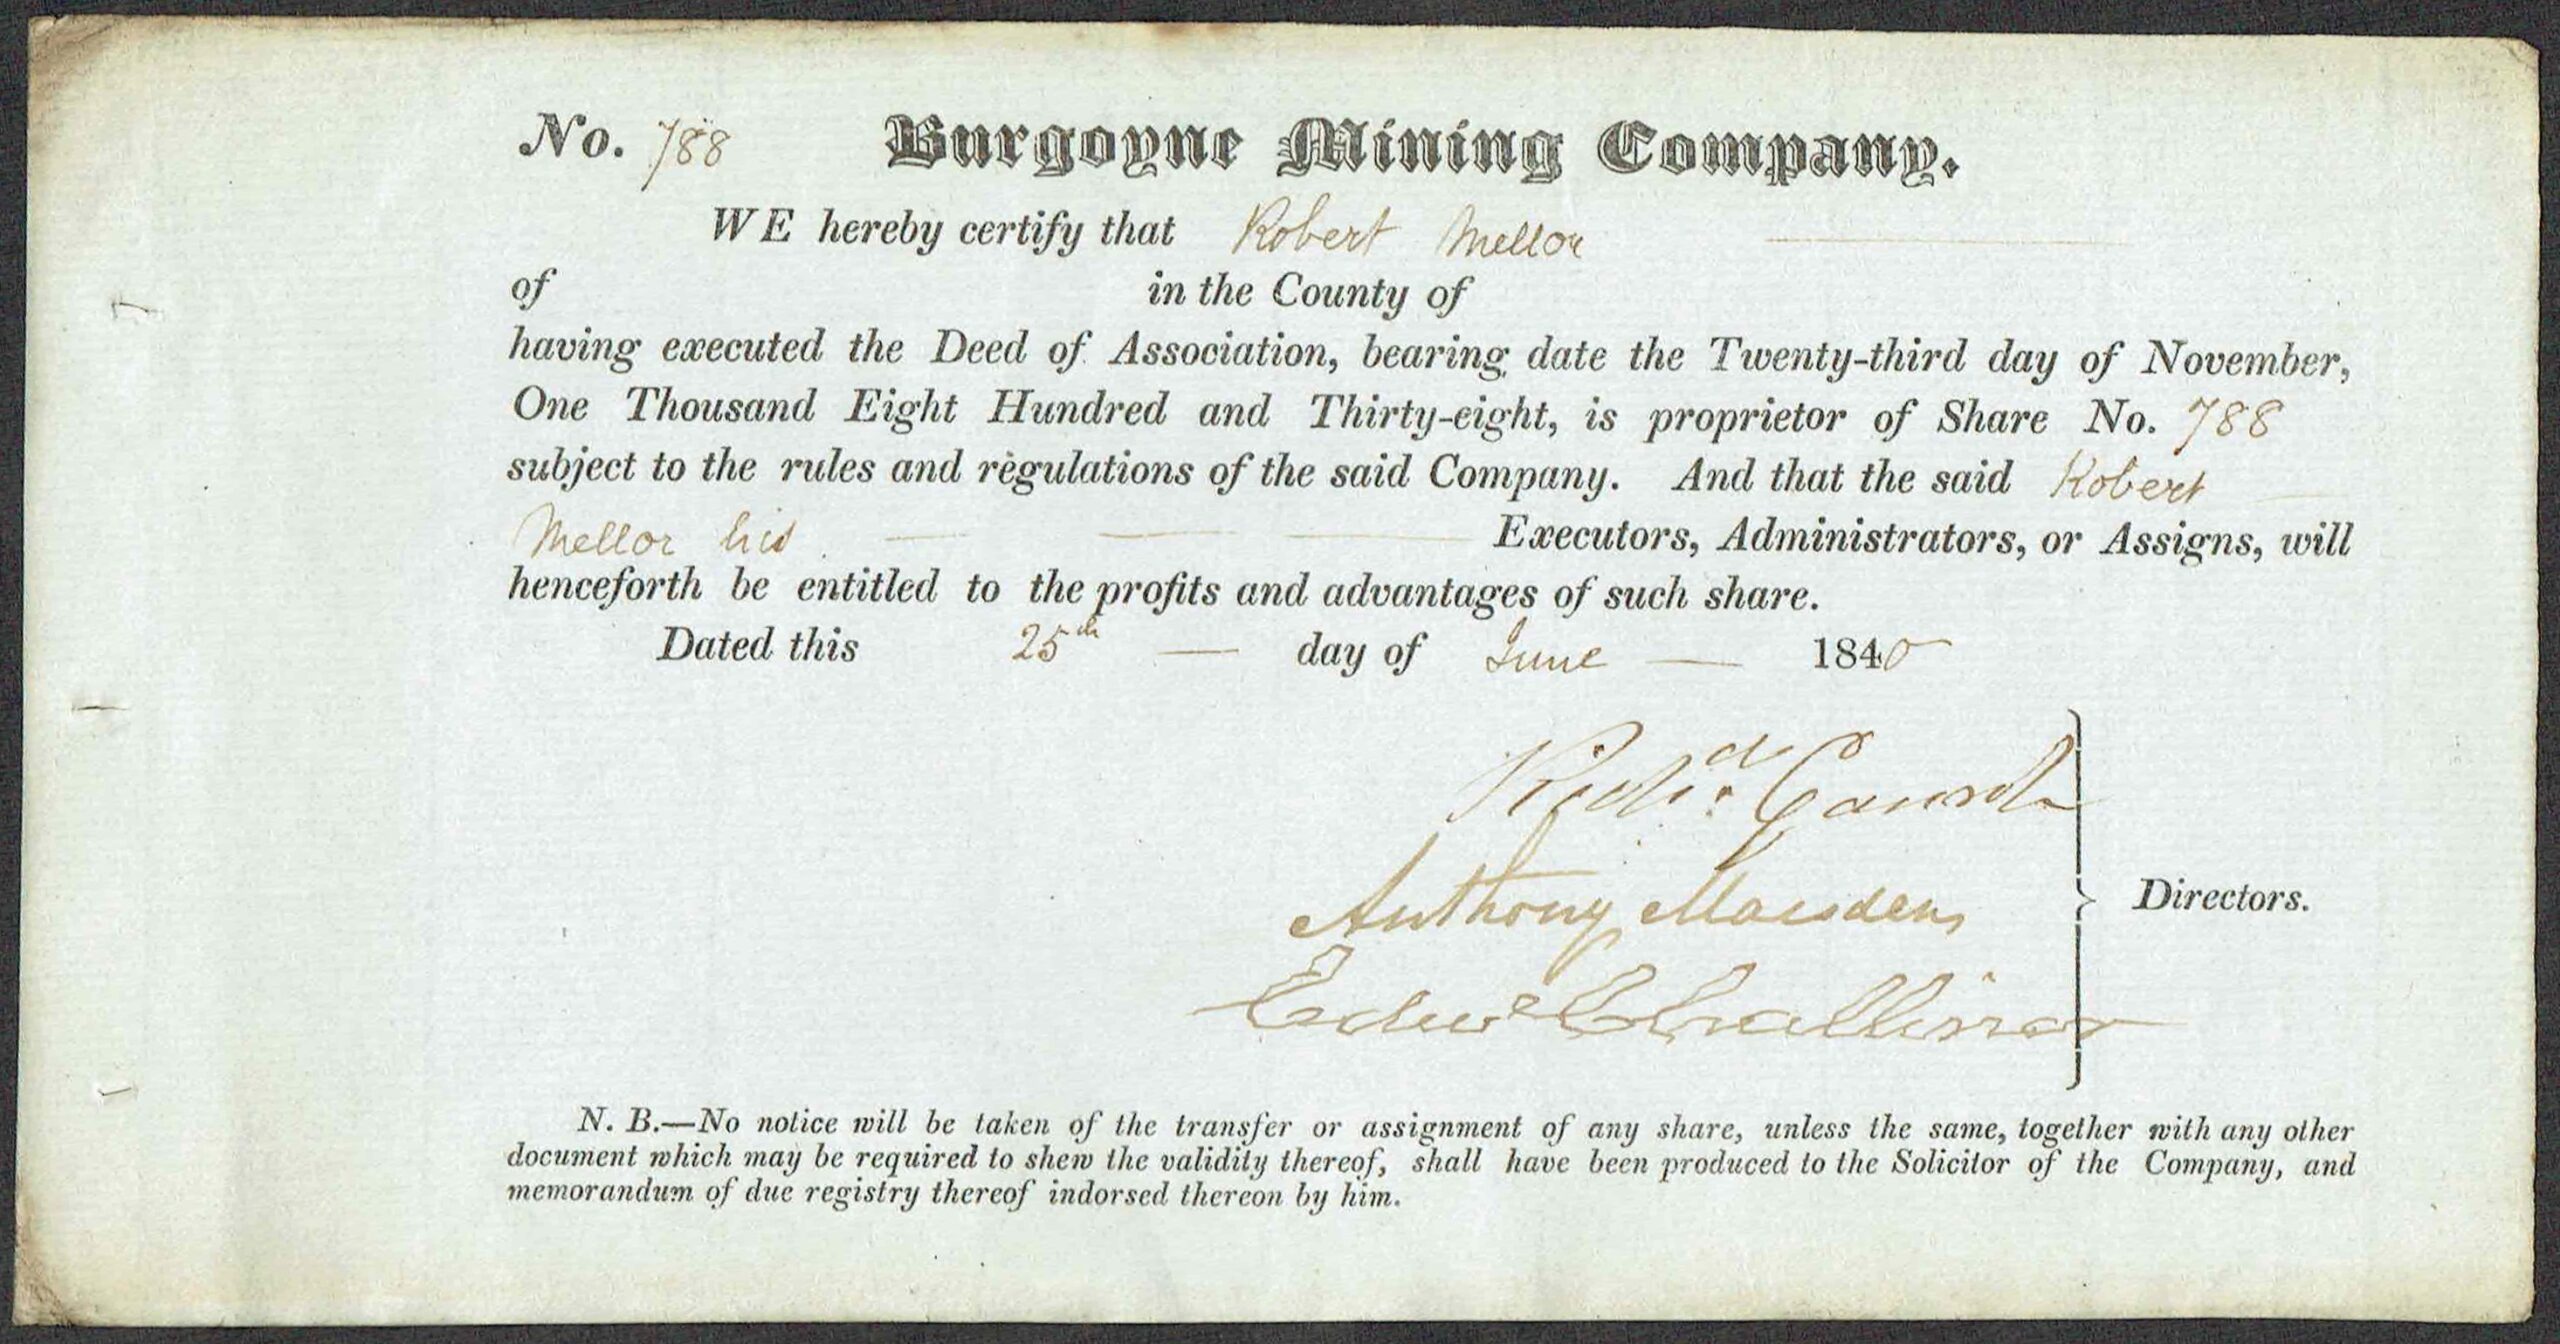 No. 788 Burgoyne Mining Company.
WE hereby certify that Robert Mellor
of in the County of
having executed the Deed of Association, bearing date the Twenty-third day of November,
One Thousand Eight Hundred and Thirty-eight, is proprietor of Share No. 788
subject to the rules and regulations of the said Company. And that the said Robert
Mellor his Executors, Administrators, or Assigns, will
henceforth be entitled to the profits and advantages of such share.
Dated this 25th day of June 1840
Richd
Anthony Marsden
Directors.
Edwd Challinor
N. B.—No notice will be taken of the transfer or assignment of any share, unless the same, together with any other
document which may be required to shew the validity thereof, shall have been produced to the Solicitor of the Company, and
memorandum of due registry thereof indorsed thereon by him.